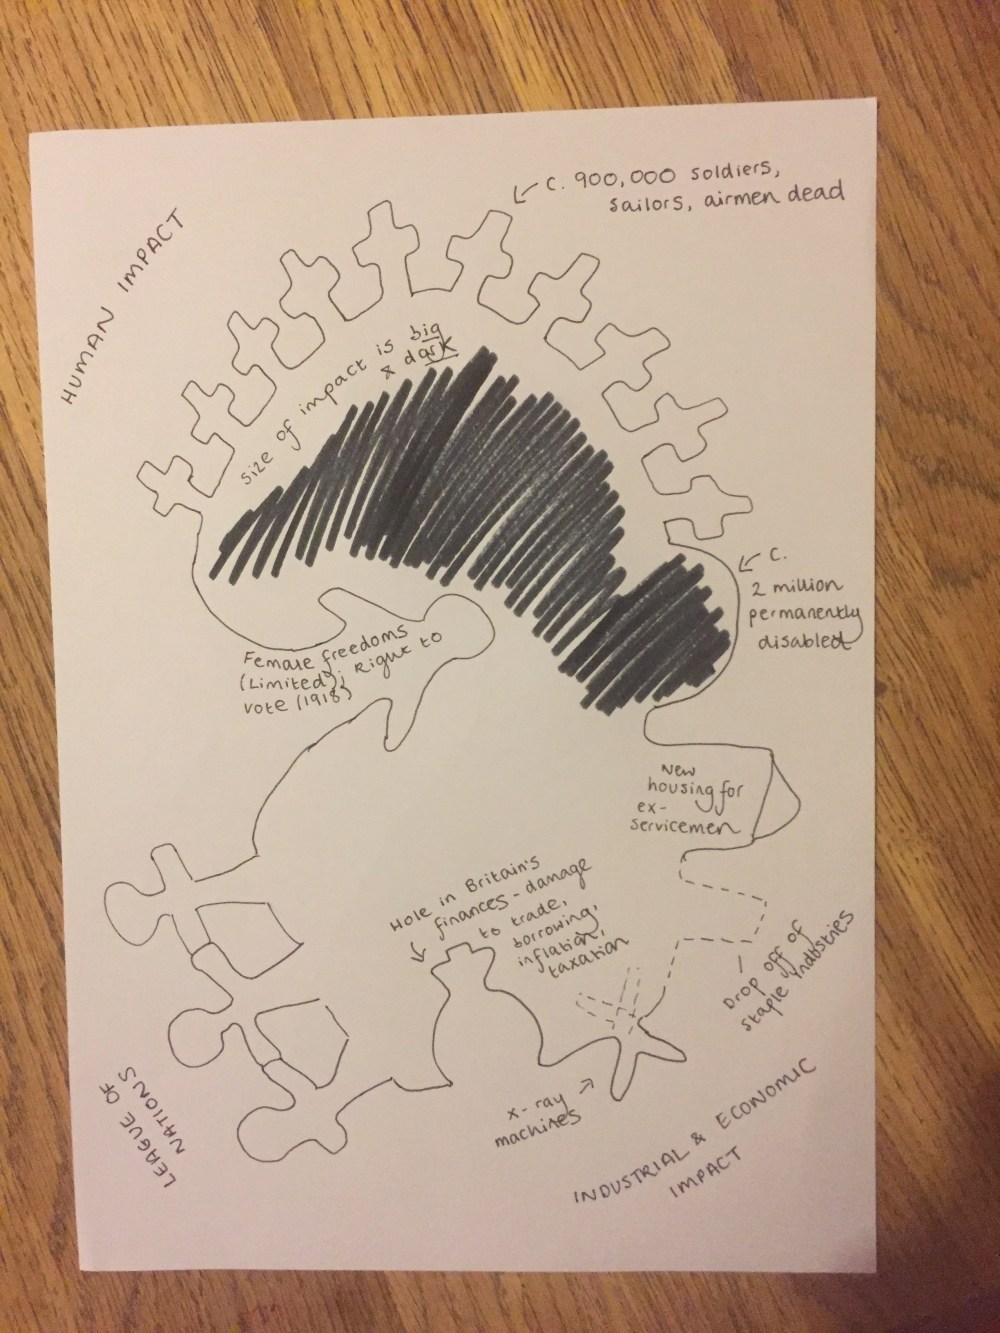 HUMAN IMPACT
c. 900,000 soldiers,
sailors, airmen dead
size of impact is big
& dark
c.
2 million
permanently
disabled
Female freedoms
(Limited); Right to
vote (1918)
New
housing for
ex-
servicemen
Hole in Britain's
finances - damage
to trade,
borrowing,
inflation,
taxation
Drop off of
staple industries
x-ray
machines
LEAGUE OF
NATIONS
INDUSTRIAL & ECONOMIC
IMPACT